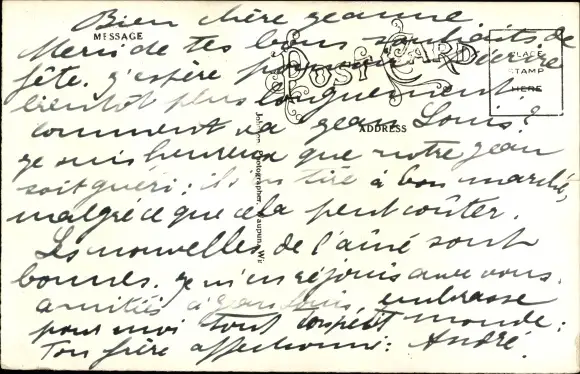 Bien chère Jeanne
MESSAGE
Merci de tes bons souhaits de
fête. J'espère pouvoir t'écrire
POST CARD
PLACE
STAMP
HERE
bientôt plus longuement.
Comment va Jean Louis?
ADDRESS
Je suis heureux que notre Jean
soit guéri; il s'en tire à bon marché,
malgré ce que cela peut coûter.
Les nouvelles de l'aîné sont
bonnes. Je m'en réjouis avec vous.
Amitiés à Jean Louis, embrasse
pour moi tout ton petit monde:
Ton frère affectionné: André.
Photographer, Waupun, Wis